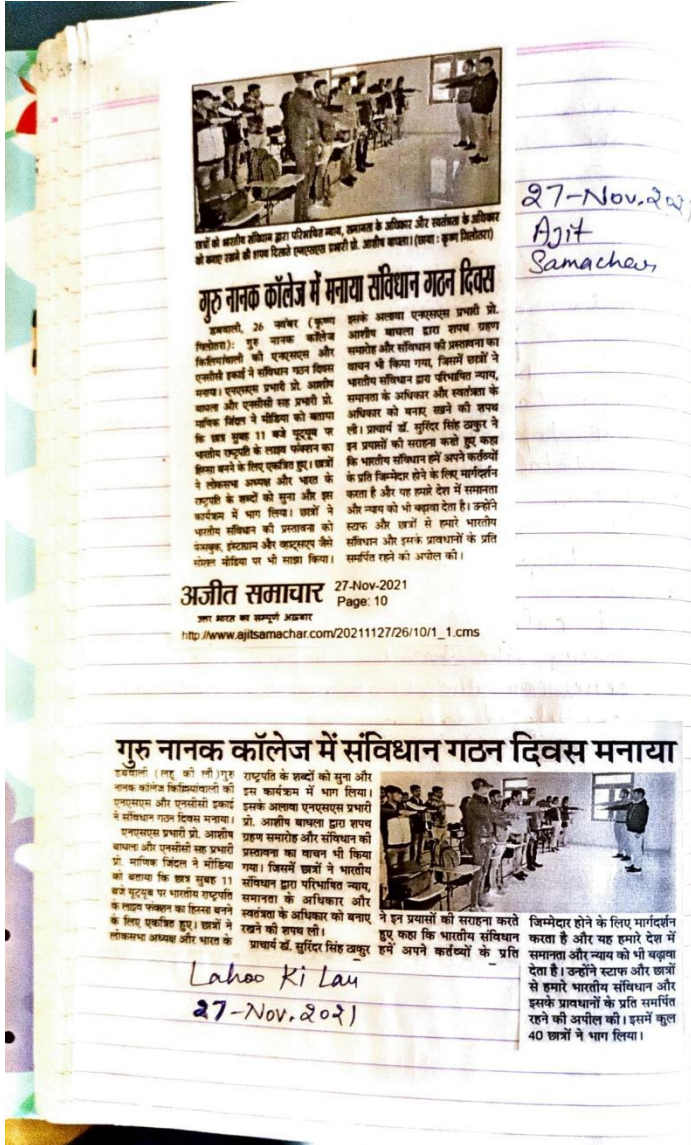 छात्रों को भारतीय संविधान द्वारा परिभाषित न्याय, समानता के अधिकार और स्वतंत्रता के अधिकार
को बनाए रखने की शपथ दिलाते एनएसएस प्रभारी प्रो. आशीष बाघला। (छाया : कृष्ण गिलोतरा)
27-Nov. 2021
Ajit
Samachar
गुरु नानक कॉलेज में मनाया संविधान गठन दिवस
डबवाली, 26 नवंबर (कृष्ण
गिलोतरा): गुरु नानक कॉलेज
किलियांवाली की एनएसएस और
एनसीसी इकाई ने संविधान गठन दिवस
मनाया। एनएसएस प्रभारी प्रो. आशीष
बाघला और एनसीसी सह प्रभारी प्रो.
माणिक जिंदल ने मीडिया को बताया
कि छात्र सुबह 11 बजे यूट्यूब पर
भारतीय राष्ट्रपति के लाइव फंक्शन का
हिस्सा बनने के लिए एकत्रित हुए। छात्रों
ने लोकसभा अध्यक्ष और भारत के
राष्ट्रपति के शब्दों को सुना और इस
कार्यक्रम में भाग लिया। छात्रों ने
भारतीय संविधान की प्रस्तावना को
फेसबुक, इंस्टाग्राम और व्हाट्सएप जैसे
सोशल मीडिया पर भी साझा किया।
इसके अलावा एनएसएस प्रभारी प्रो.
आशीष बाघला द्वारा शपथ ग्रहण
समारोह और संविधान की प्रस्तावना का
वाचन भी किया गया, जिसमें छात्रों ने
भारतीय संविधान द्वारा परिभाषित न्याय,
समानता के अधिकार और स्वतंत्रता के
अधिकार को बनाए रखने की शपथ
ली। प्राचार्य डॉ. सुरिंदर सिंह ठाकुर ने
इन प्रयासों की सराहना करते हुए कहा
कि भारतीय संविधान हमें अपने कर्तव्यों
के प्रति जिम्मेदार होने के लिए मार्गदर्शन
करता है और यह हमारे देश में समानता
और न्याय को भी बढ़ावा देता है। उन्होंने
स्टाफ और छात्रों से हमारे भारतीय
संविधान और इसके प्रावधानों के प्रति
समर्पित रहने की अपील की।
अजीत समाचार 27-Nov-2021
Page: 10
उत्तर भारत का सम्पूर्ण अख़बार
http://www.ajitsamachar.com/20211127/26/10/1_1.cms
गुरु नानक कॉलेज में संविधान गठन दिवस मनाया
डबवाली (लहू की लौ) गुरु
नानक कॉलेज किलियांवाली की
एनएसएस और एनसीसी इकाई
ने संविधान गठन दिवस मनाया।
एनएसएस प्रभारी प्रो. आशीष
बाघला और एनसीसी सह प्रभारी
प्रो. माणिक जिंदल ने मीडिया
को बताया कि छात्र सुबह 11
बजे यूट्यूब पर भारतीय राष्ट्रपति
के लाइव फंक्शन का हिस्सा बनने
के लिए एकत्रित हुए। छात्रों ने
लोकसभा अध्यक्ष और भारत के
राष्ट्रपति के शब्दों को सुना और
इस कार्यक्रम में भाग लिया।
इसके अलावा एनएसएस प्रभारी
प्रो. आशीष बाघला द्वारा शपथ
ग्रहण समारोह और संविधान की
प्रस्तावना का वाचन भी किया
गया। जिसमें छात्रों ने भारतीय
संविधान द्वारा परिभाषित न्याय,
समानता के अधिकार और
स्वतंत्रता के अधिकार को बनाए
रखने की शपथ ली।
प्राचार्य डॉ. सुरिंदर सिंह ठाकुर
ने इन प्रयासों की सराहना करते
हुए कहा कि भारतीय संविधान
हमें अपने कर्तव्यों के प्रति
जिम्मेदार होने के लिए मार्गदर्शन
करता है और यह हमारे देश में
समानता और न्याय को भी बढ़ावा
देता है। उन्होंने स्टाफ और छात्रों
से हमारे भारतीय संविधान और
इसके प्रावधानों के प्रति समर्पित
रहने की अपील की। इसमें कुल
40 छात्रों ने भाग लिया।
Lahoo Ki Lau
27-Nov. 2021